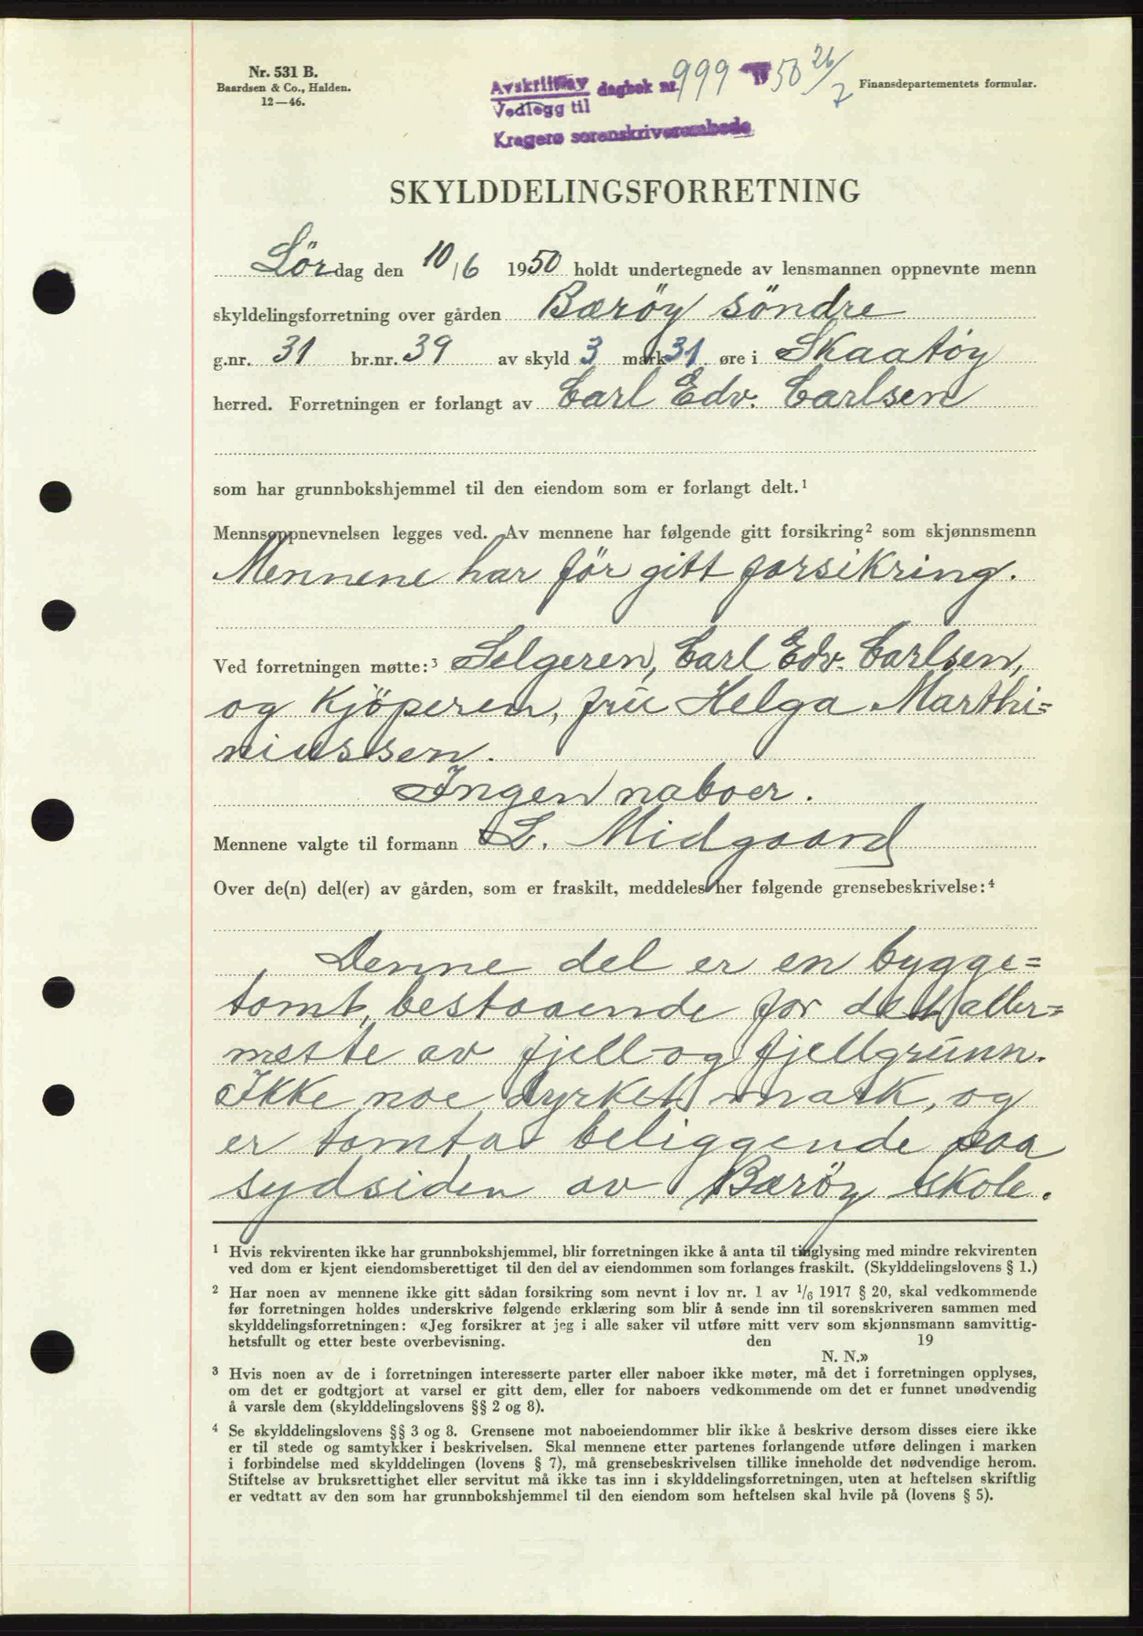 Nr. 531 B.
Baardsen & Co., Halden.
12—46.
Avskrift av dagbok nr. 999 1950 26/7
Vedlegg til
Kragerø sorenskriverembede
Finansdepartementets formular.
SKYLDDELINGSFORRETNING
Lördag den 10/6 1950 holdt undertegnede av lensmannen oppnevnte menn
skyldelingsforretning over gården Bærøy söndre
g.nr. 31 br.nr. 39 av skyld 3 mark 31 øre i Skaatöy
herred. Forretningen er forlangt av Carl Edv. Carlsen
som har grunnbokshjemmel til den eiendom som er forlangt delt.¹
Mennsoppnevnelsen legges ved. Av mennene har følgende gitt forsikring² som skjønnsmenn
Mennene har för gitt forsikring.
Ved forretningen møtte:³ Selgeren, Carl Edv. Carlsen,
og kjöperen, fru Helga Marthi=
niussen.
Ingen naboer.
Mennene valgte til formann L. Midgaard
Over de(n) del(er) av gården, som er fraskilt, meddeles her følgende grensebeskrivelse:⁴
Denne del er en bygge=
tomt, bestaaende for det aller=
meste av fjell og fjellgrunn.
Ikke noe dyrket mark, og
er tomta beliggende paa
sydsiden av Bæröy skole.
¹ Hvis rekvirenten ikke har grunnbokshjemmel, blir forretningen ikke å anta til tinglysing med mindre rekvirenten
ved dom er kjent eiendomsberettiget til den del av eiendommen som forlanges fraskilt. (Skylddelingslovens § 1.)
² Har noen av mennene ikke gitt sådan forsikring som nevnt i lov nr. 1 av 1/6 1917 § 20, skal vedkommende
før forretningen holdes underskrive følgende erklæring som blir å sende inn til sorenskriveren sammen med
skylddelingsforretningen: «Jeg forsikrer at jeg i alle saker vil utføre mitt verv som skjønnsmann samvittig-
hetsfullt og etter beste overbevisning. den 19
N. N.»
³ Hvis noen av de i forretningen interesserte parter eller naboer ikke møter, må det i forretningen opplyses,
om det er godtgjort at varsel er gitt dem, eller for naboers vedkommende om det er funnet unødvendig
å varsle dem (skylddelingslovens §§ 2 og 8).
⁴ Se skylddelingslovens §§ 3 og 8. Grensene mot naboeiendommer blir ikke å beskrive dersom disses eiere ikke
er til stede og samtykker i beskrivelsen. Skal mennene etter partenes forlangende utføre delingen i marken
i forbindelse med skylddelingen (lovens § 7), må grensebeskrivelsen tillike inneholde det nødvendige herom.
Stiftelse av bruksrettighet eller servitut må ikke tas inn i skylddelingsforretningen, uten at heftelsen skriftlig
er vedtatt av den som har grunnbokshjemmel til den eiendom som heftelsen skal hvile på (lovens § 5).